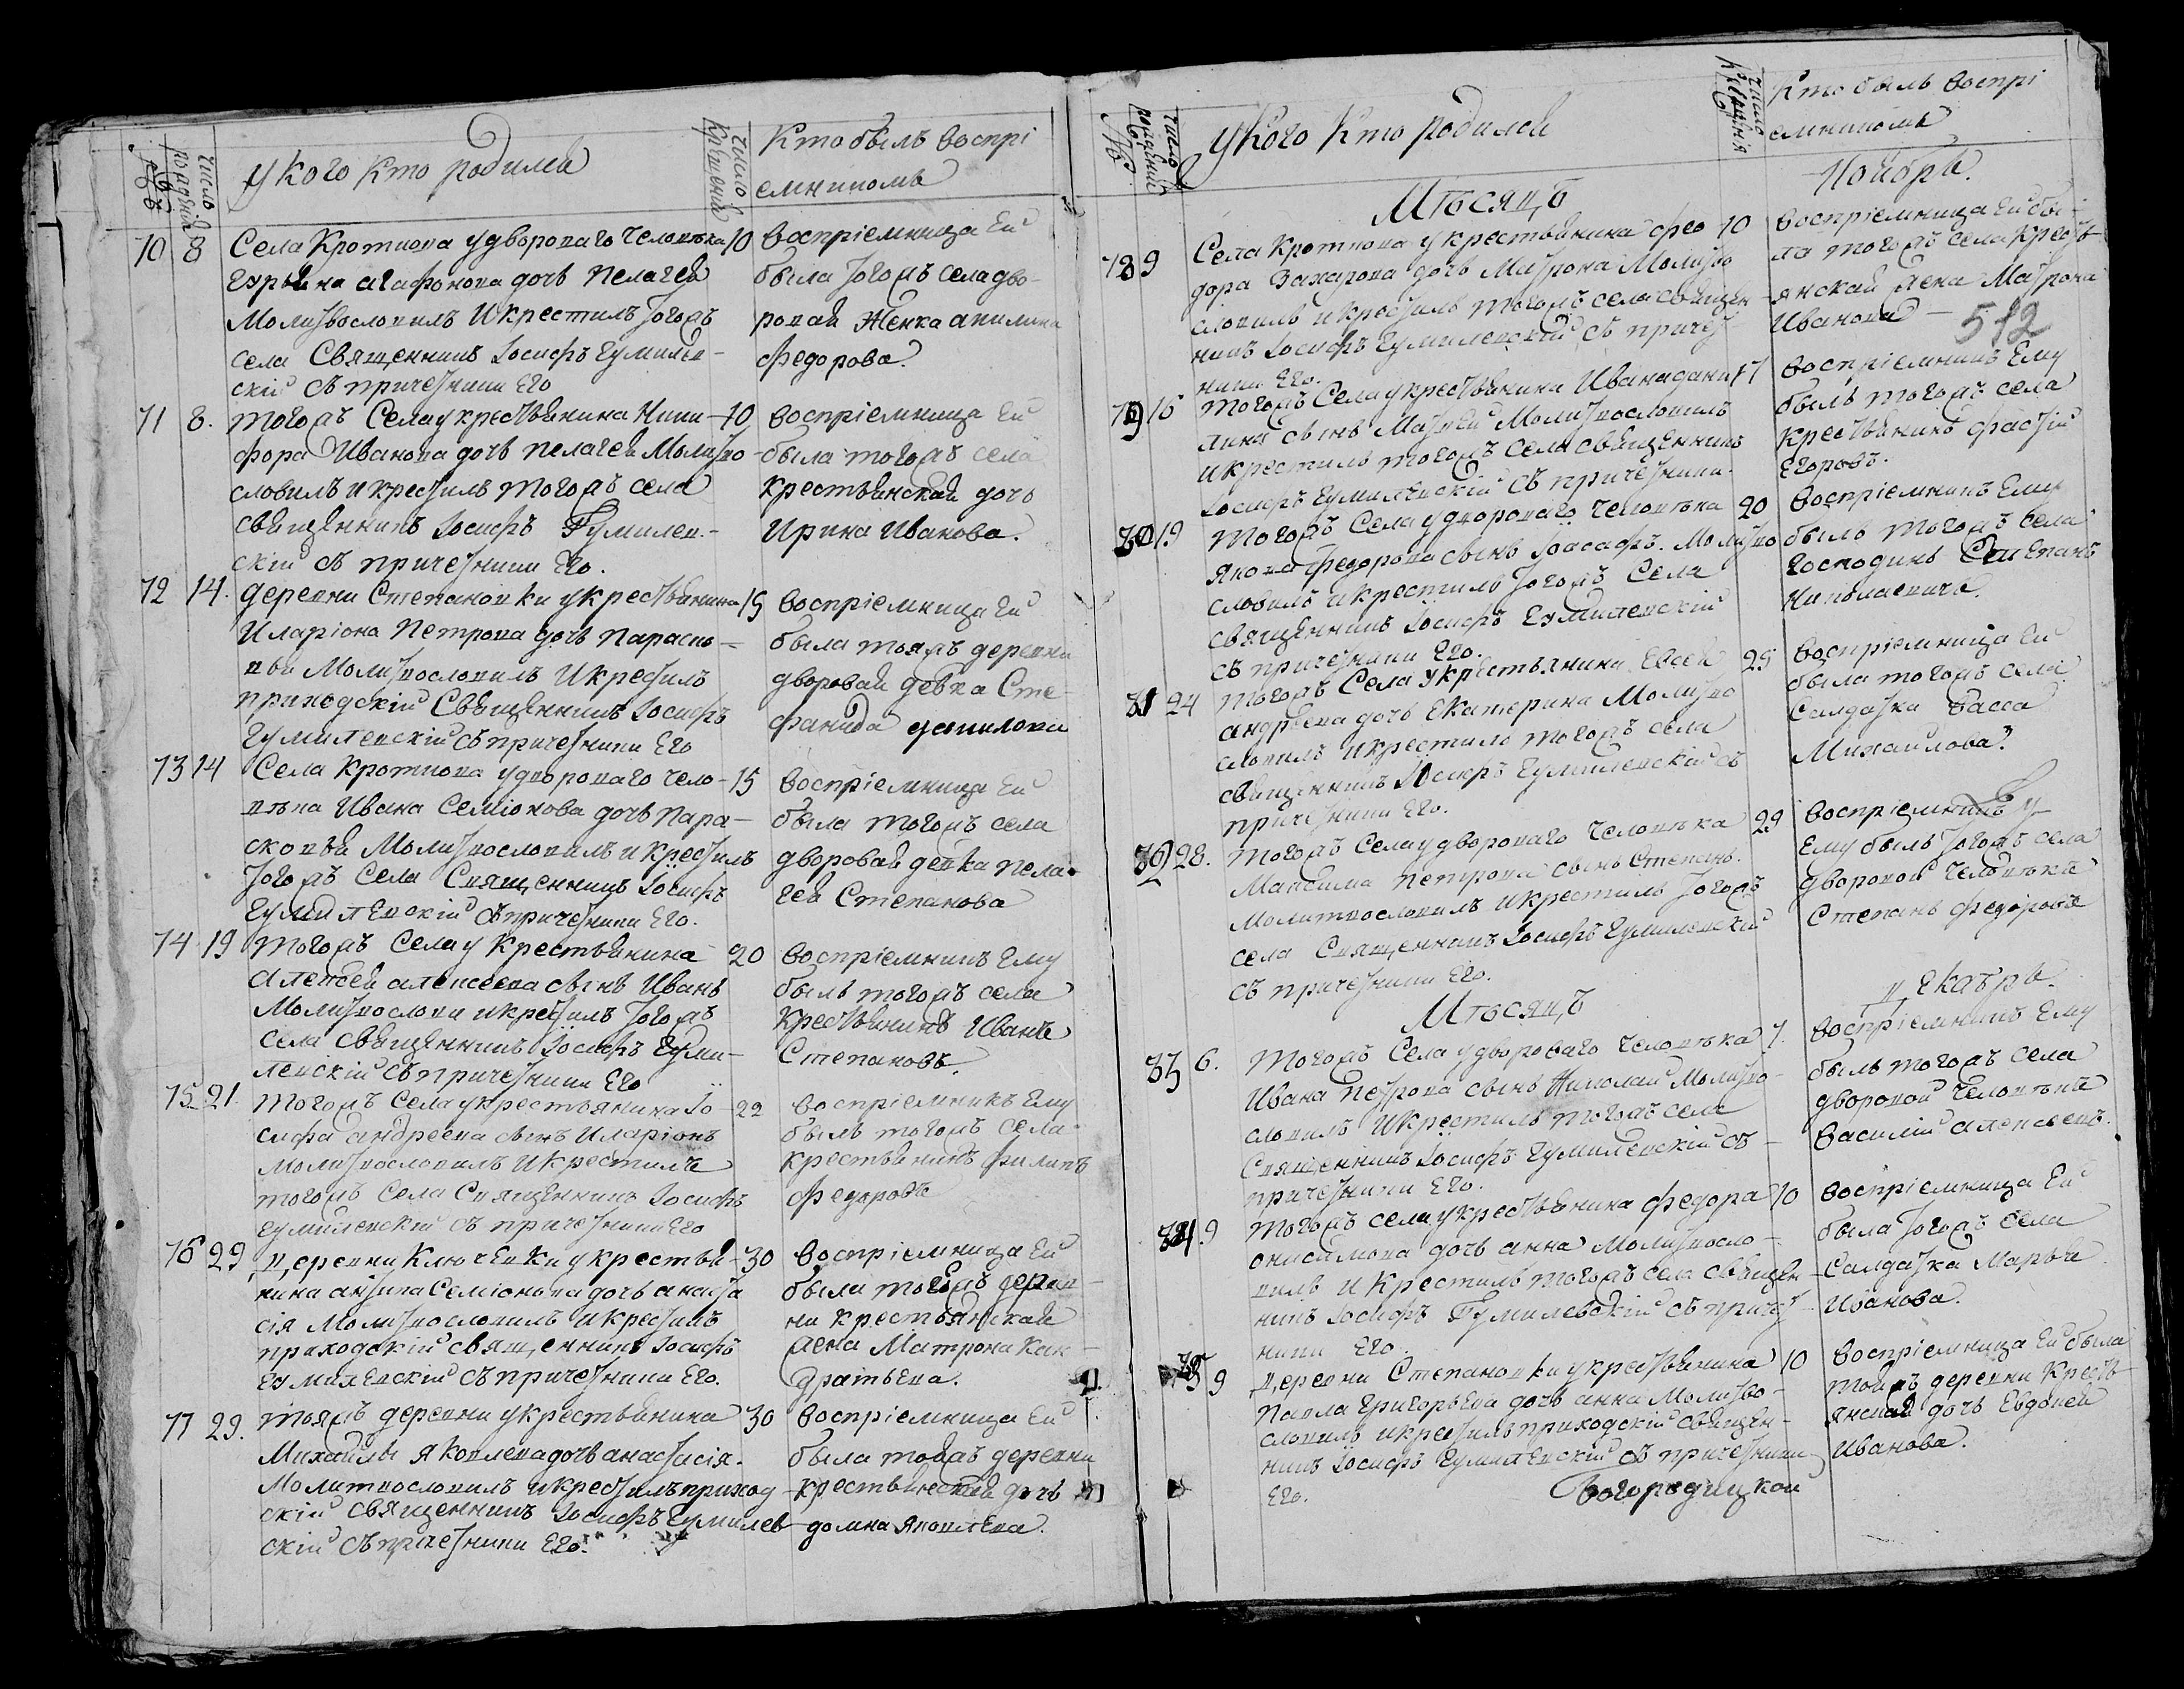 №
число рожденій
У кого кто родился
число крещеній
Кто былъ воспрі
емникомъ
70 8 Села Кроткова у двороваго человѣка 10
Гурьяна Агафонова дочь Пелагея
Молитвословилъ и крестилъ тогожъ
села Священникъ Іосифъ Гумилев-
скій съ причетники Его
воспріемница Ей
была тогожъ села дво-
ровая Женка Акилина
Федорова.
71 8. тогожъ Села у крестьянина Ники- 10
фора Иванова дочь Пелагея Молитво-
словилъ и крестилъ тогожъ села
священникъ Іосифъ Гумилев-
скій съ причетники Его.
воспріемница Ей
была тогожъ села
крестьянская дочь
Ирина Иванова.
72 14. деревни Степановки у крестьянина 15
Иларіона Петрова дочь Параско-
вья Молитвословилъ и крестилъ
приходскій Священникъ Іосифъ
Гумилевскій съ причетники Его
воспріемница Ей
была тояжъ деревни
дворовая девка Сте-
фанида
73 14 Села Кроткова у двороваго чело- 15
вѣка Ивана Семіонова дочь Пара-
сковья Молитвословилъ и крестилъ
тогожъ Села Священникъ Іосифъ
Гумилевскій съ причетники Его.
воспріемница Ей
была тогожъ села
дворовая девка Пела-
гея Степанова
74 19 тогожъ Села у крестьянина 20
Алексея Алексеева сынъ Иванъ
Молитвослови и крестилъ тогожъ
села священникъ Іосифъ Гуми-
левскій съ причетники Его
воспріемникъ Ему
былъ тогожъ села
крестьянинъ Иванъ
Степановъ.
75 21. тогожъ Села у крестьянина Іо- 22
сифа Андреева сынъ Иларіонъ
Молитвословилъ и крестилъ
тогожъ Села Священникъ Іосифъ
Гумилевскій съ причетники Его
воспріемникъ Ему
былъ тогожъ села
крестьянинъ Филипъ
Федоровъ
76 29 деревни Ключевки у крестья- 30
нина Антипа Семіонова дочь Анаста
сія Молитвословилъ и крестилъ
приходскій священникъ Іосифъ
Гумилевскій съ причетники Его.
воспріемница Ей
была тогожъ дерев-
ни крестьянская
жена Матрона Кан-
дратьева.
77 29. тояжъ деревни у крестьянина 30
Михайлы Яковлева дочь Анастасія.
Молитвословилъ и крестилъ приход-
скій священникъ Іосифъ Гумилев-
скій съ причетники Его.
воспріемница Ей
была тояжъ деревни
крестьянская дочь
Домна Яковлева.
№
число рожденій
У кого кто родился
число крещенія
Кто былъ воспрі
емникомъ
Мѣсяцъ Ноябрь.
78 9 Села Кроткова у крестьянина Фео 10
дора Захарова дочь Матрона Молитво
словилъ и крестилъ тогожъ села священ-
никъ Іосифъ Гумилевскій съ причет-
ники Его.
воспріемница Ей бы-
ла тогожъ села крестъ-
янская жена Матрона
Иванова
512
79 16 тогожъ Села у крестьянина Ивана Дани 17
лина сынъ Матвей Молитвословилъ
и крестилъ тогожъ Села священникъ
Іосифъ Гумилевскій съ причетники.
воспріемникъ Ему
былъ тогожъ села
крестьянинъ
Егоровъ.
80 19 тогожъ Села у двороваго человѣка 20
Якова Федорова сынъ Іоасафъ. Молитво
словилъ и крестилъ тогожъ Села
священникъ Іосифъ Гумилевскій
съ причетники Его.
воспріемникъ Ему
былъ тогожъ села
господинъ Степанъ
Николаевичь.
81 24 тогожъ Села у крестьянина Евсея 25
Андреева дочь Екатерина Молитво
словилъ и крестилъ тогожъ села
священникъ Іосифъ Гумилевскій съ
причетники Его.
воспріемница Ей
была тогожъ села
Салдатка Васса
Михайлова.
82 28. тогожъ Села у двороваго человѣка 29
Максима Петрова сынъ Степанъ.
Молитвословилъ и крестилъ тогожъ
села Священникъ Іосифъ Гумилевскій
съ причетники Его.
воспріемникъ
Ему былъ тогожъ села
дворовой человѣкъ
Степанъ Федоровъ
Мѣсяцъ Декабрь.
83 6. Тогожъ Села у двороваго человѣка 7.
Ивана Петрова сынъ Николай Молитво-
словилъ и крестилъ тогожъ села
Священникъ Іосифъ Гумилевскій съ
причетники Его.
воспріемникъ Ему
былъ тогожъ села
дворовой человѣкъ
Василій Алексѣевъ.
84 9 тогожъ села у крестьянина Федора 10
Онисимова дочь Анна Молитвосло-
вилъ и крестилъ тогожъ села священ-
никъ Іосифъ Гумилевскій съ причет-
ники Его.
воспріемница Ей
была тогожъ села
Салдатка Марья
Иванова.
85 9 деревни Степановки у крестьянина 10
Павла Григорьева дочь Анна Молитво-
словилъ и крестилъ приходскій священ-
никъ Іосифъ Гумилевскій съ причетники
Его.
воспріемница Ей была
тояжъ деревни крестъ-
янская дочь Евдокея
Иванова.
Богородицкой